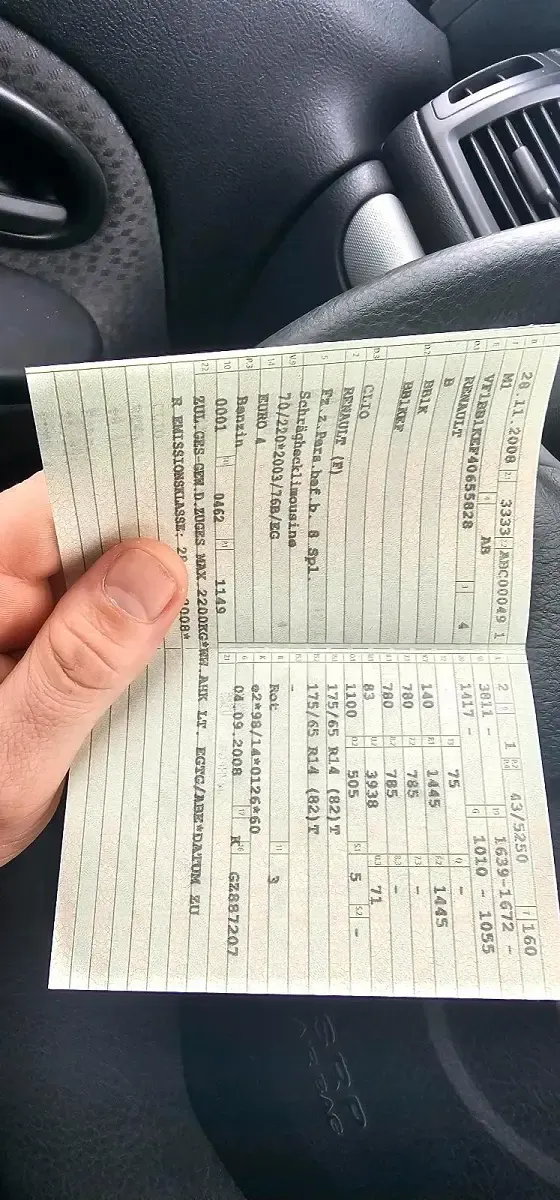 28.11.2008 3333 ABC00049 1
M1 AB
VF1BB1KEF40655828
RENAULT 4
B
BB1K
BB1KEF
CLIO
RENAULT (F)
Fz.z.Pers.bef.b. 8 Spl.
Schräghecklimousine
70/220*2003/76B/EG
EURO 4
Benzin
0001 0462 1149
ZUL.GES-GEW.D.ZUGES MAX.2200KG*WW.AHK LT. EGTG/ABE*DATUM ZU
R EMISSIONSKLASSE: 2008*
2 1 43/5250 160
3811 - 1639-1672 -
1417 - 1010 - 1055
75 -
140 1445 1445
780 785 -
780 785 -
83 3938 71
1100 505 5 -
175/65 R14 (82)T
175/65 R14 (82)T
-
Rot 3
e2*98/14*0126*60
04.09.2008 K GZ887207
SRP
AIRBAG